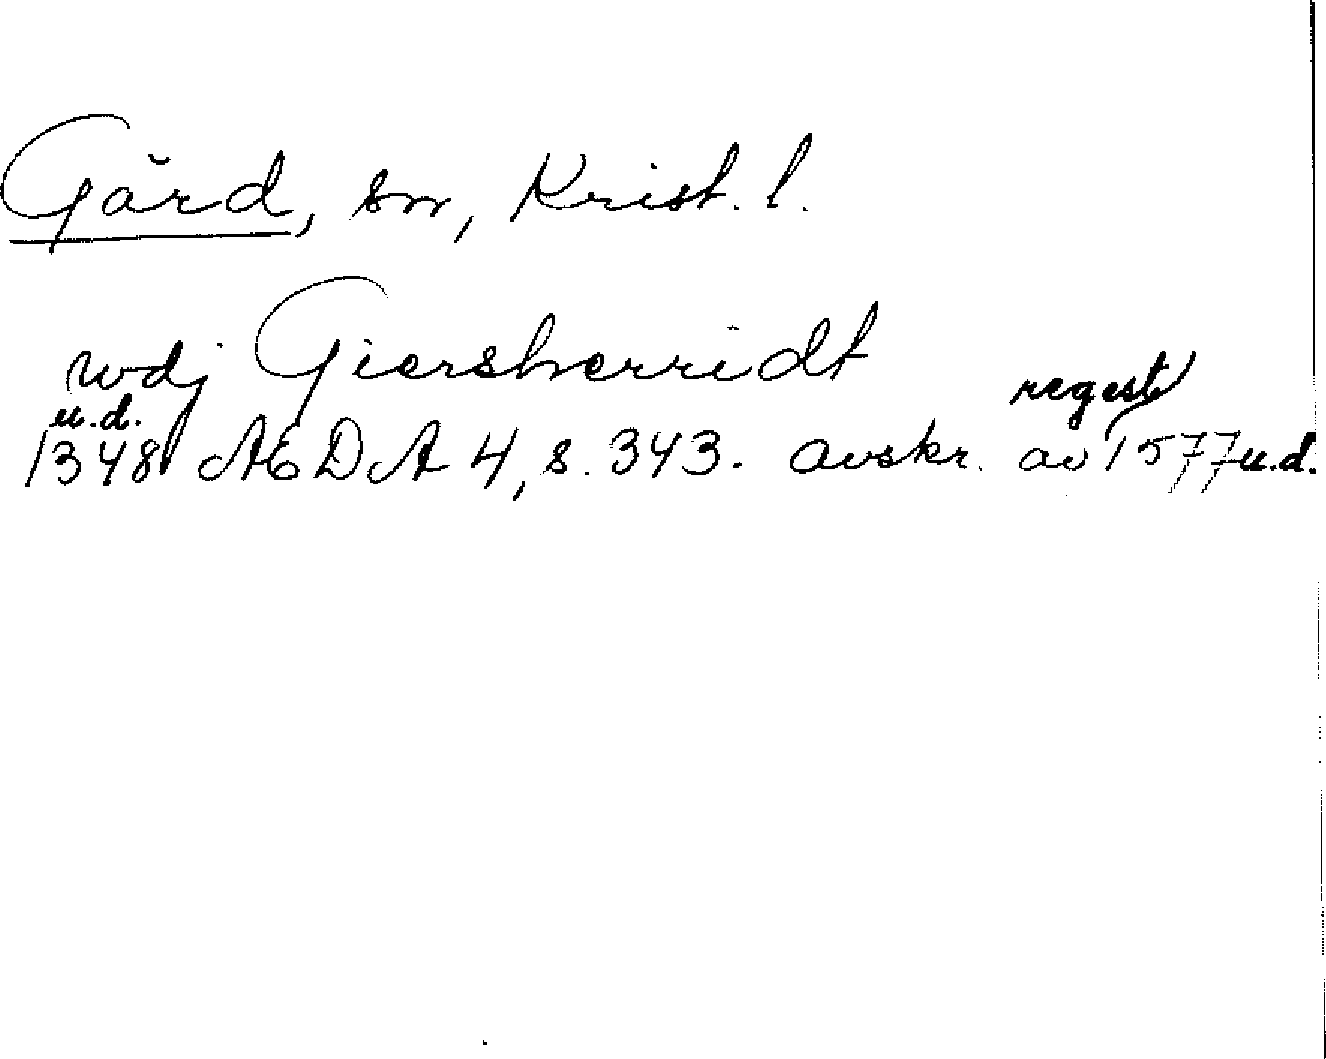 Gärd, sn, Krist. l.
wdj Giersherridt
u.d. regest
1348 AEDA 4, s. 343. avskr. av 1577 u.d.